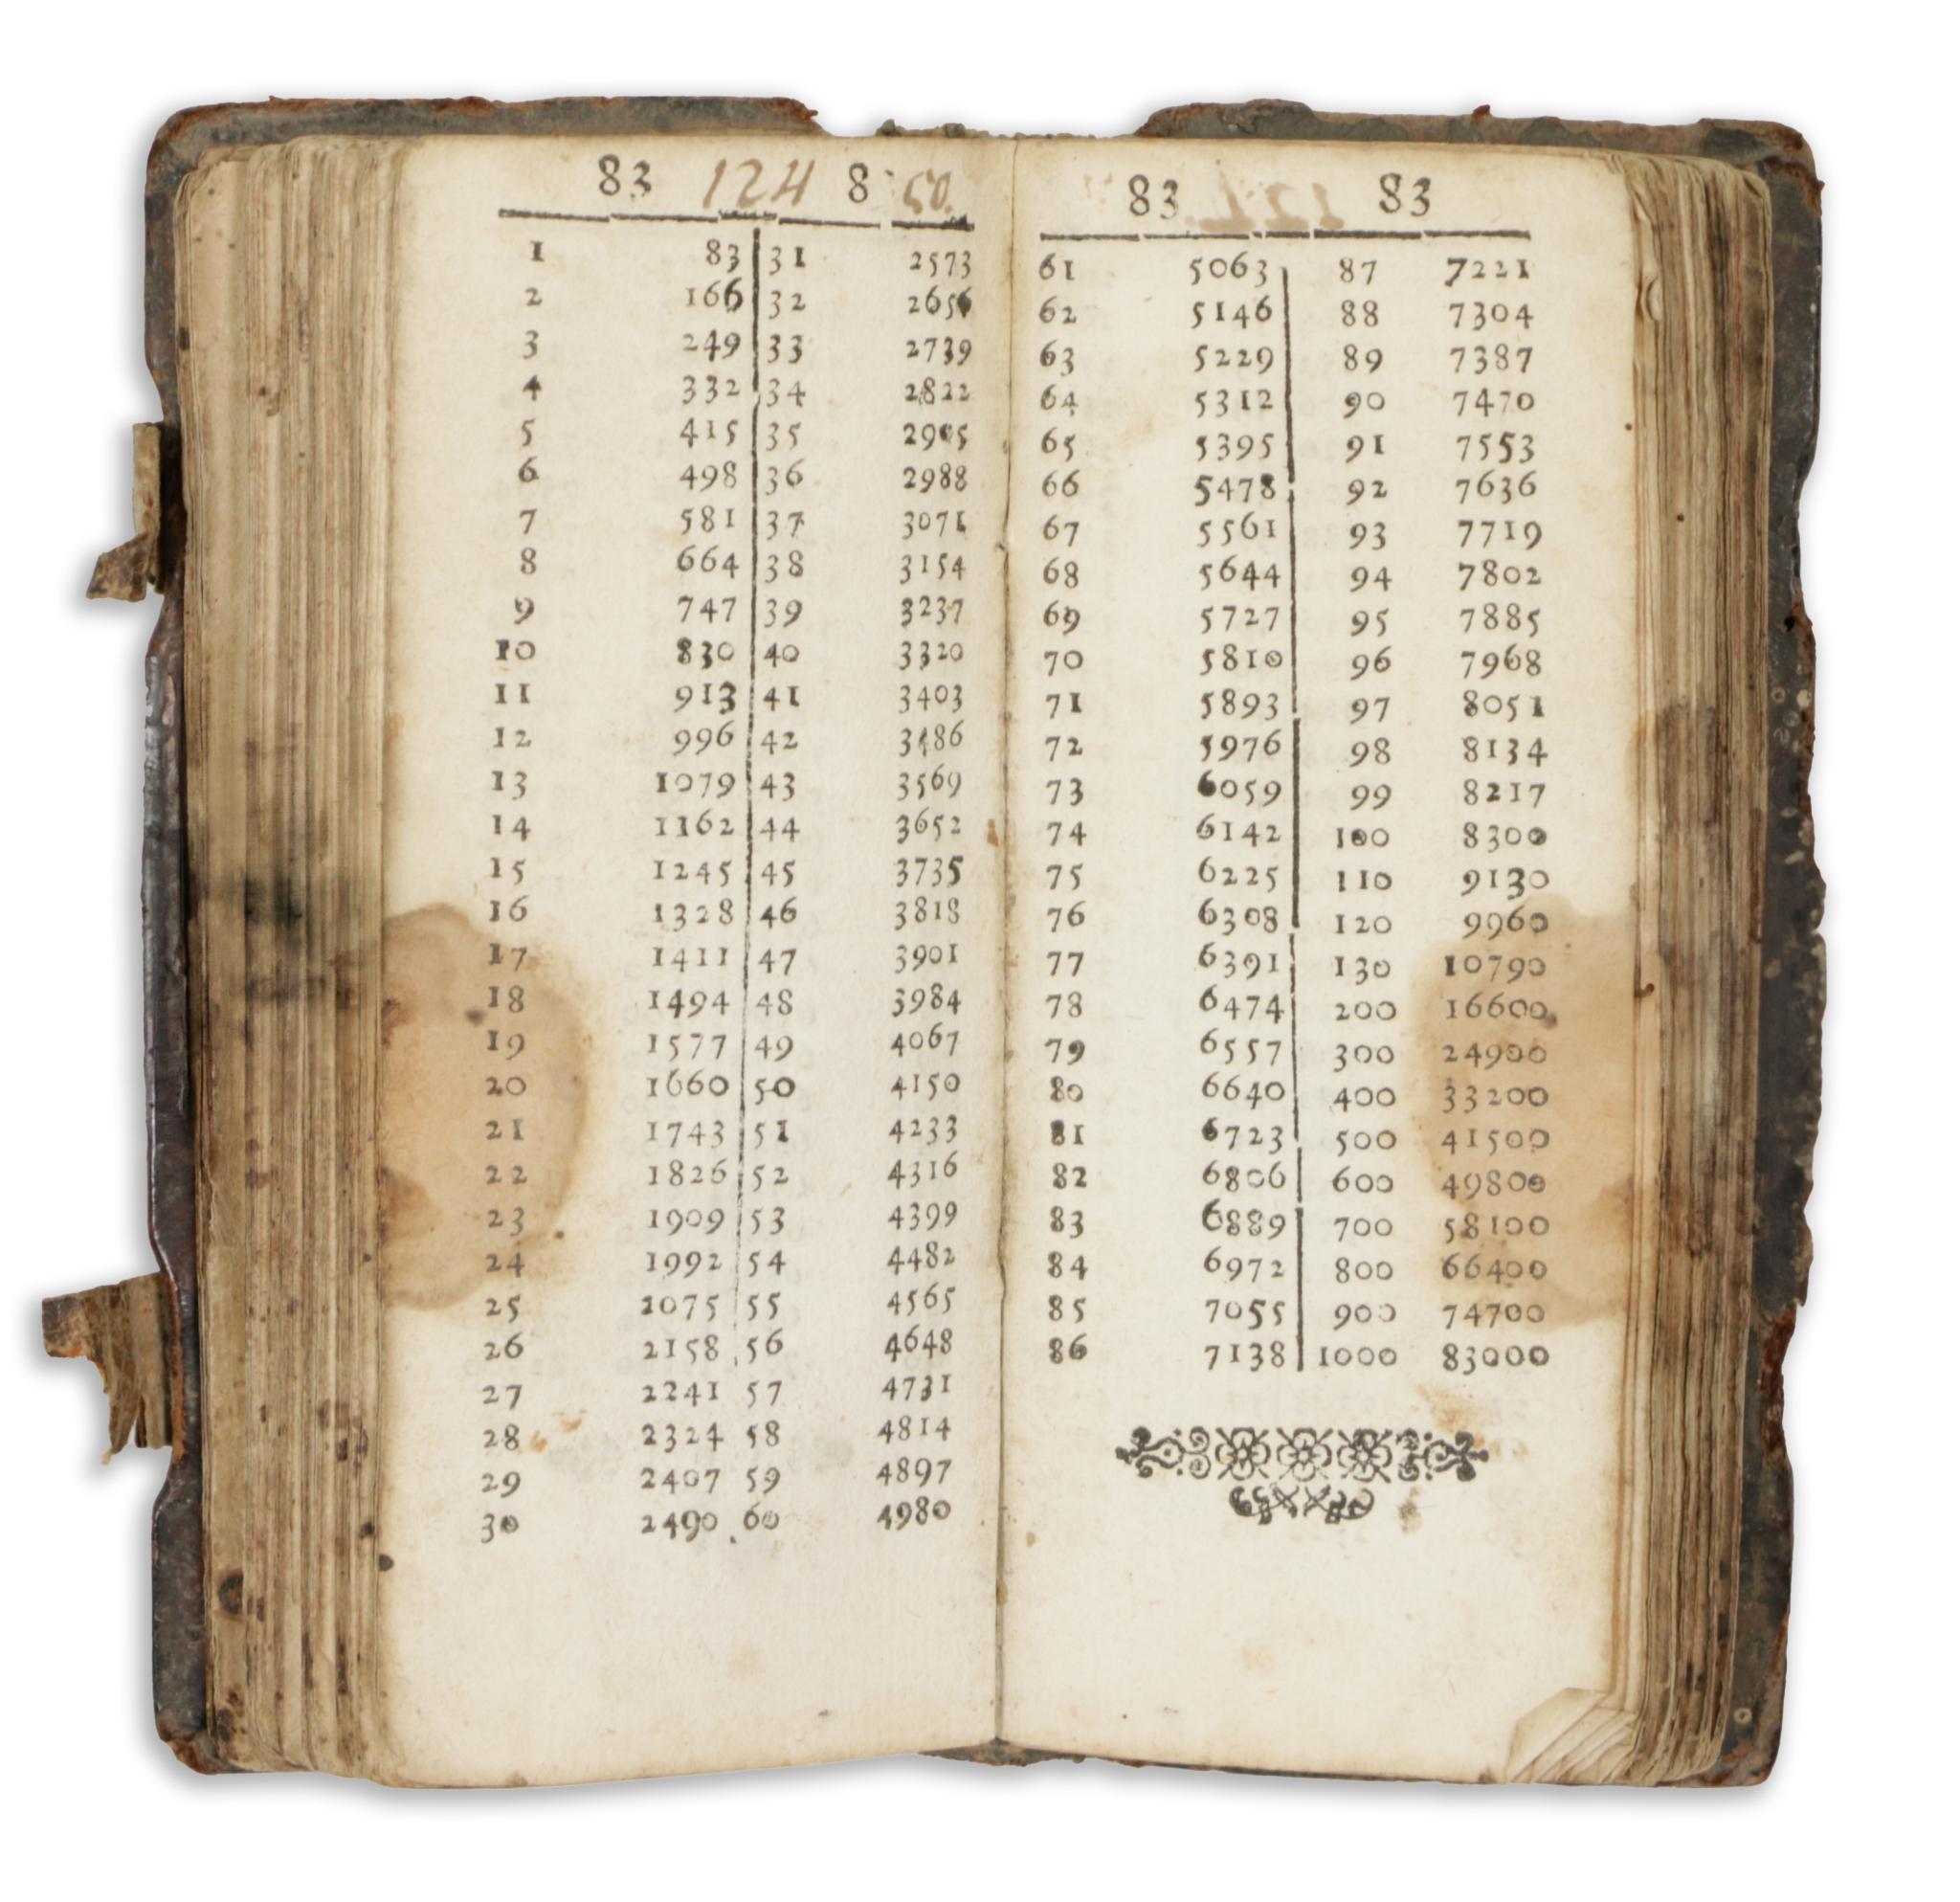 83 124 8 50.
1 83 31 2573
2 166 32 2656
3 249 33 2739
4 332 34 2822
5 415 35 2905
6 498 36 2988
7 581 37 3071
8 664 38 3154
9 747 39 3237
10 830 40 3320
11 913 41 3403
12 996 42 3486
13 1079 43 3569
14 1162 44 3652
15 1245 45 3735
16 1328 46 3818
17 1411 47 3901
18 1494 48 3984
19 1577 49 4067
20 1660 50 4150
21 1743 51 4233
22 1826 52 4316
23 1909 53 4399
24 1992 54 4482
25 2075 55 4565
26 2158 56 4648
27 2241 57 4731
28 2324 58 4814
29 2407 59 4897
30 2490 60 4980
83 83
61 5063 87 7221
62 5146 88 7304
63 5229 89 7387
64 5312 90 7470
65 5395 91 7553
66 5478 92 7636
67 5561 93 7719
68 5644 94 7802
69 5727 95 7885
70 5810 96 7968
71 5893 97 8051
72 5976 98 8134
73 6059 99 8217
74 6142 100 8300
75 6225 110 9130
76 6308 120 9960
77 6391 130 10790
78 6474 200 16600
79 6557 300 24900
80 6640 400 33200
81 6723 500 41500
82 6806 600 49800
83 6889 700 58100
84 6972 800 66400
85 7055 900 74700
86 7138 1000 83000